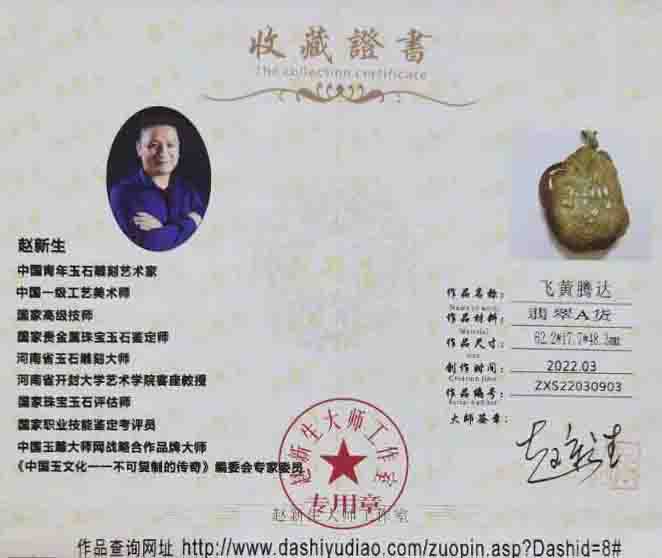 收藏證書
The collection certificate
赵新生
中国青年玉石雕刻艺术家
中国一级工艺美术师
国家高级技师
国家贵金属珠宝玉石鉴定师
河南省玉石雕刻大师
河南省开封大学艺术学院客座教授
国家珠宝玉石评估师
国家职业技能鉴定考评员
中国玉雕大师网战略合作品牌大师
《中国玉文化一一不可复制的传奇》编委会专家委员
作品名称: 飞黄腾达
Name of work
作品材料: 翡翠A货
Material
作品尺寸: 62.2*17.7*48.3mm
size
创作时间: 2022.03
Creation time
作品编号: ZXS22030903
Serial number
大师签章:
赵新生
赵新生大师工作室
专用章
赵新生大师工作室
作品查询网址 http://www.dashiyudiao.com/zuopin.asp?Dashid=8#